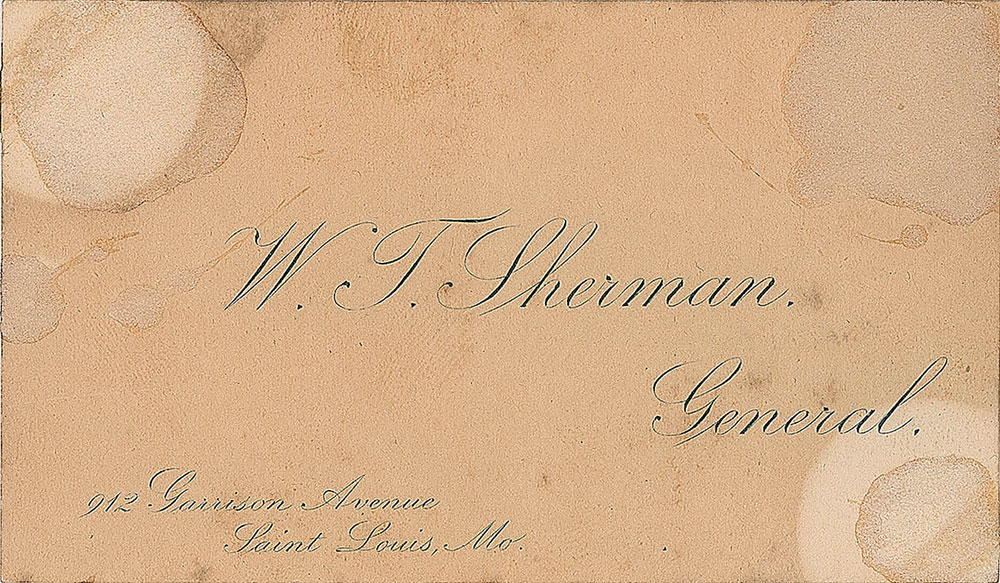 W. T. Sherman.
General.
912 Garrison Avenue
Saint Louis, Mo.